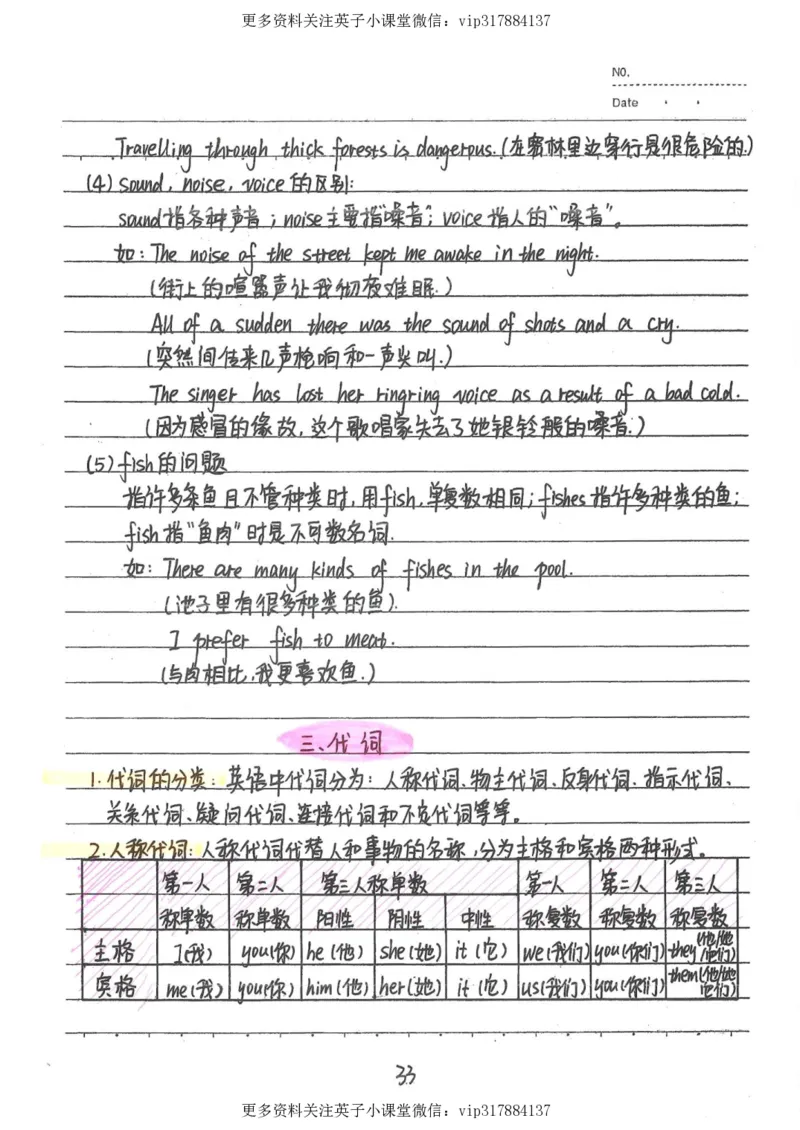 更多资料关注英子小课堂微信：vip317884137
NO.
Date
Travelling through thick forests is dangerous.(在密林里边穿行是很危险的.)
(4) sound, noise, voice 的区别:
sound指各种声音；noise主要指"噪音"；voice 指人的"嗓音"。
如：The noise of the street kept me awake in the night.
(街上的喧嚣声让我彻夜难眠.)
All of a sudden there was the sound of shots and a cry.
(突然间传来几声枪响和一声尖叫.)
The singer has lost her ringring voice as a result of a bad cold.
(因为感冒的缘故,这个歌唱家失去了她银铃般的嗓音.)
(5) fish的问题
指许多条鱼且不管种类时,用fish,单复数相同；fishes指许多种类的鱼；
fish 指"鱼肉"时是不可数名词.
如：There are many kinds of fishes in the pool.
(池子里有很多种类的鱼).
I prefer fish to meat.
(与肉相比,我更喜欢鱼.)
三、代词
1.代词的分类：英语中代词分为：人称代词、物主代词、反身代词、指示代词、
关系代词、疑问代词、连接代词和不定代词等等。
2.人称代词：人称代词代替人和事物的名称,分为主格和宾格两种形式。
第一人 第二人 第三人称单数 第一人 第二人 第三人
称单数 称单数 阳性 阴性 中性 称复数 称复数 称复数
主格 I(我) you(你) he(他) she(她) it(它) we(我们) you(你们) they(他/她/它们)
宾格 me(我) you(你) him(他) her(她) it(它) us(我们) you(你们) them(他/她/它们)
33
更多资料关注英子小课堂微信：vip317884137